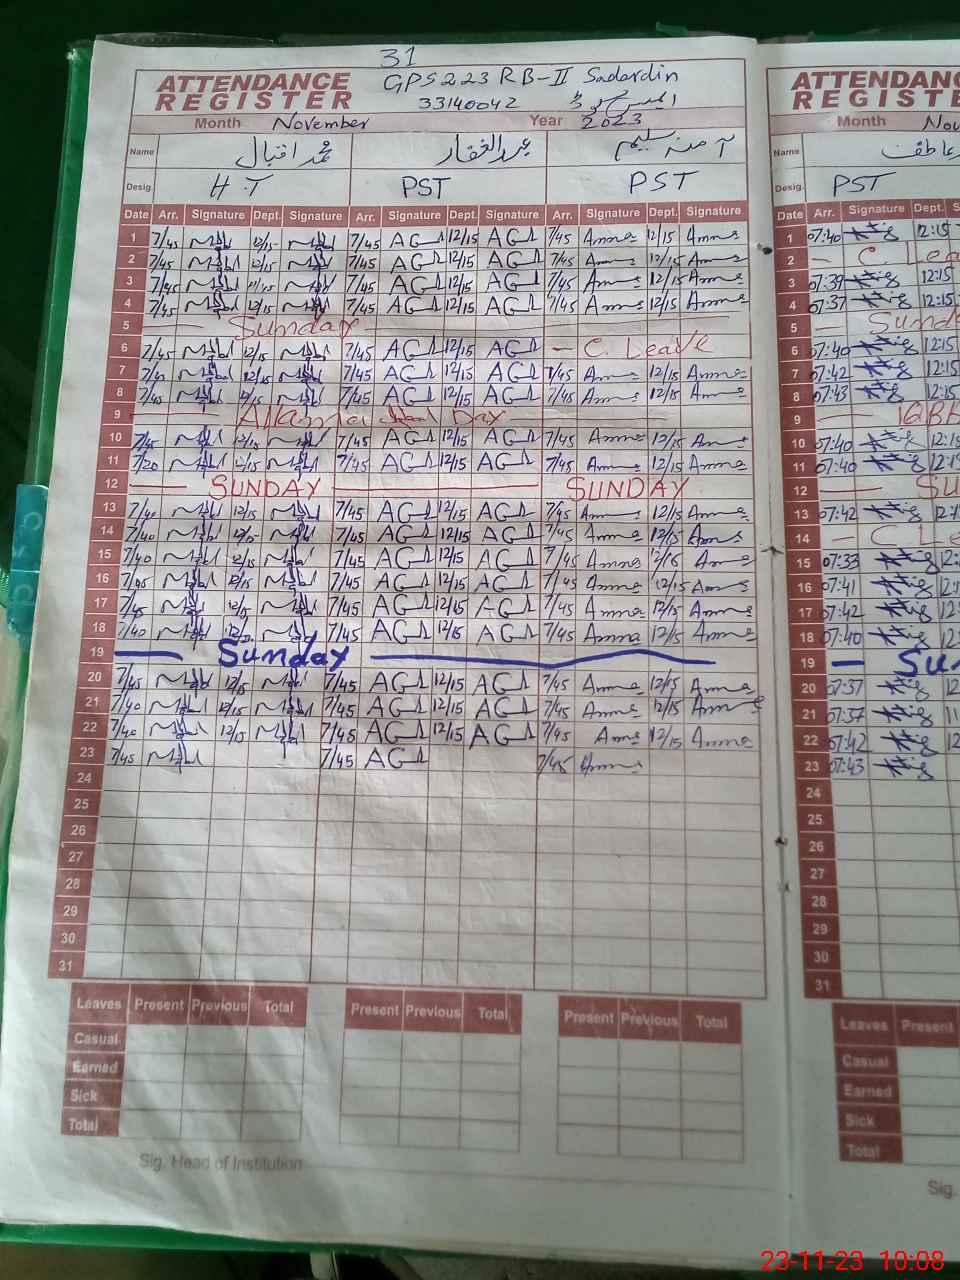 31
ATTENDANCE REGISTER
GPS 223 RB-II Sadardin
33140042
Month November Year 2023
Name محمد اقبال عبدالغفار آمنہ سلیم
Desig. H.T PST PST
Date Arr. Signature Dept. Signature Arr. Signature Dept. Signature Arr. Signature Dept. Signature
1 7/45 12/15 7/45 AG 12/15 AG 7/45 Amna 12/15 Amna
2 7/45 12/15 7/45 AG 12/15 AG 7/45 Amna 12/15 Amna
3 7/45 7/45 AG 12/15 AG 7/45 Amna 12/15 Amna
4 7/45 12/15 7/45 AG 12/15 AG 7/45 Amna 12/15 Amna
5 — Sunday —
6 7/45 12/15 7/45 AG 12/15 AG — C. Leave
7 12/15 7/45 AG 12/15 AG 7/45 Amna 12/15 Amna
8 7/45 12/15 7/45 AG 12/15 AG 7/45 Amna 12/15 Amna
9 — Allama Iqbal Day —
10 7/45 12/15 7/45 AG 12/15 AG 7/45 Amna 12/15 Amna
11 7/20 12/15 7/45 AG 12/15 AG 7/45 Amna 12/15 Amna
12 — SUNDAY — SUNDAY
13 7/40 12/15 7/45 AG 12/15 AG 7/45 Amna 12/15 Amna
14 7/40 12/15 7/45 AG 12/15 AG 7/45 Amna 12/15 Amna
15 7/40 12/15 7/45 AG 12/15 AG 7/45 Amna Amna
16 12/15 7/45 AG 12/15 AG 7/45 Amna 12/15 Amna
17 7/45 7/45 AG 12/15 AG 7/45 Amna 12/15 Amna
18 7/40 7/45 AG 12/15 AG 7/45 Amna 12/15 Amna
19 — Sunday —
20 7/45 12/15 7/45 AG 12/15 AG 7/45 Amna 12/15 Amna
21 7/40 12/15 7/45 AG 12/15 AG 7/45 Amna 12/15 Amna
22 7/40 12/15 7/45 AG 12/15 AG 7/45 Amna 12/15 Amna
23 7/45 7/45 AG 7/45 Amna
24
25
26
27
28
29
30
31
Leaves Present Previous Total Present Previous Total Present Previous Total
Casual
Earned
Sick
Total
Sig. Head of Institution
ATTENDANC
REGISTE
Month Nov
Name عاطف
Desig. PST
Date Arr. Signature Dept. S
1 07:40 12:15
2 — C. Lea
3 07:39 12:15
4 07:37 12:15
5 — Sund
6 07:40 12:15
7 07:42 12:15
8 07:43 12:15
9 — IQB
10 07:40 12:15
11 07:40 12:1
12 — SU
13 07:42 12:
14 — C Le
15 07:33 12:
16 07:41 12:
17 07:42 12:
18 07:40 12:
19 — Su
20 07:37 12
21 07:37 11
22 07:42 12
23 07:43
24
25
26
27
28
29
30
31
Leaves Present
Casual
Earned
Sick
Total
Sig.
23-11-23 10:08